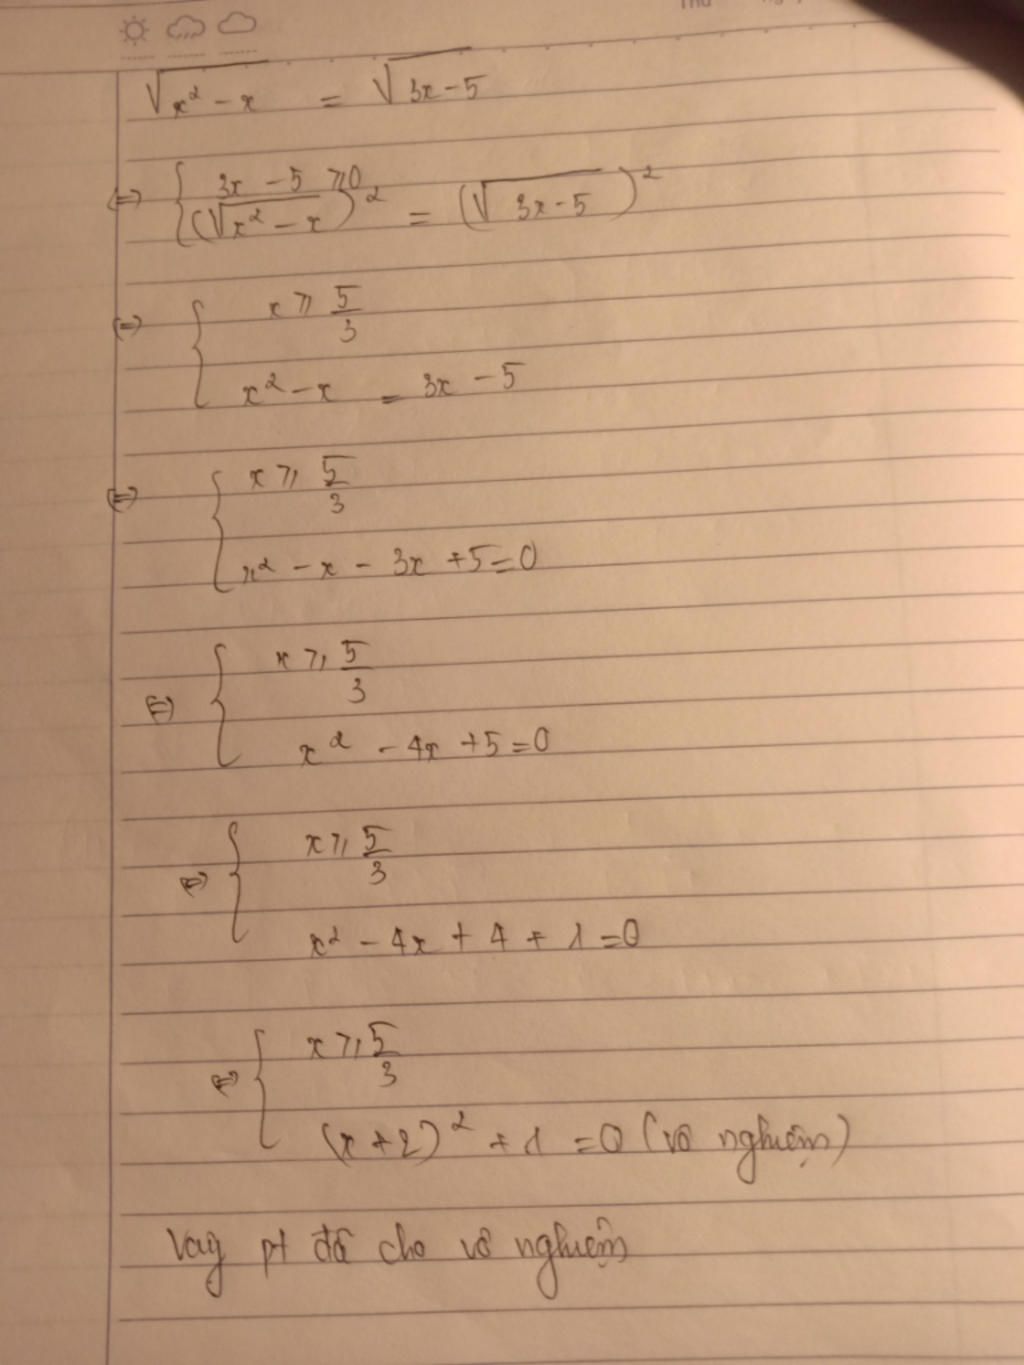 √x² - x = √3x - 5
⇔ { 3x - 5 ⩾ 0
(√x² - x)² = (√3x - 5)²
⇔ { x ⩾ 5/3
x² - x = 3x - 5
⇔ { x ⩾ 5/3
x² - x - 3x + 5 = 0
⇔ { x ⩾ 5/3
x² - 4x + 5 = 0
⇔ { x ⩾ 5/3
x² - 4x + 4 + 1 = 0
⇔ { x ⩾ 5/3
(x + 2)² + 1 = 0 (vô nghiệm)
Vậy pt đã cho vô nghiệm